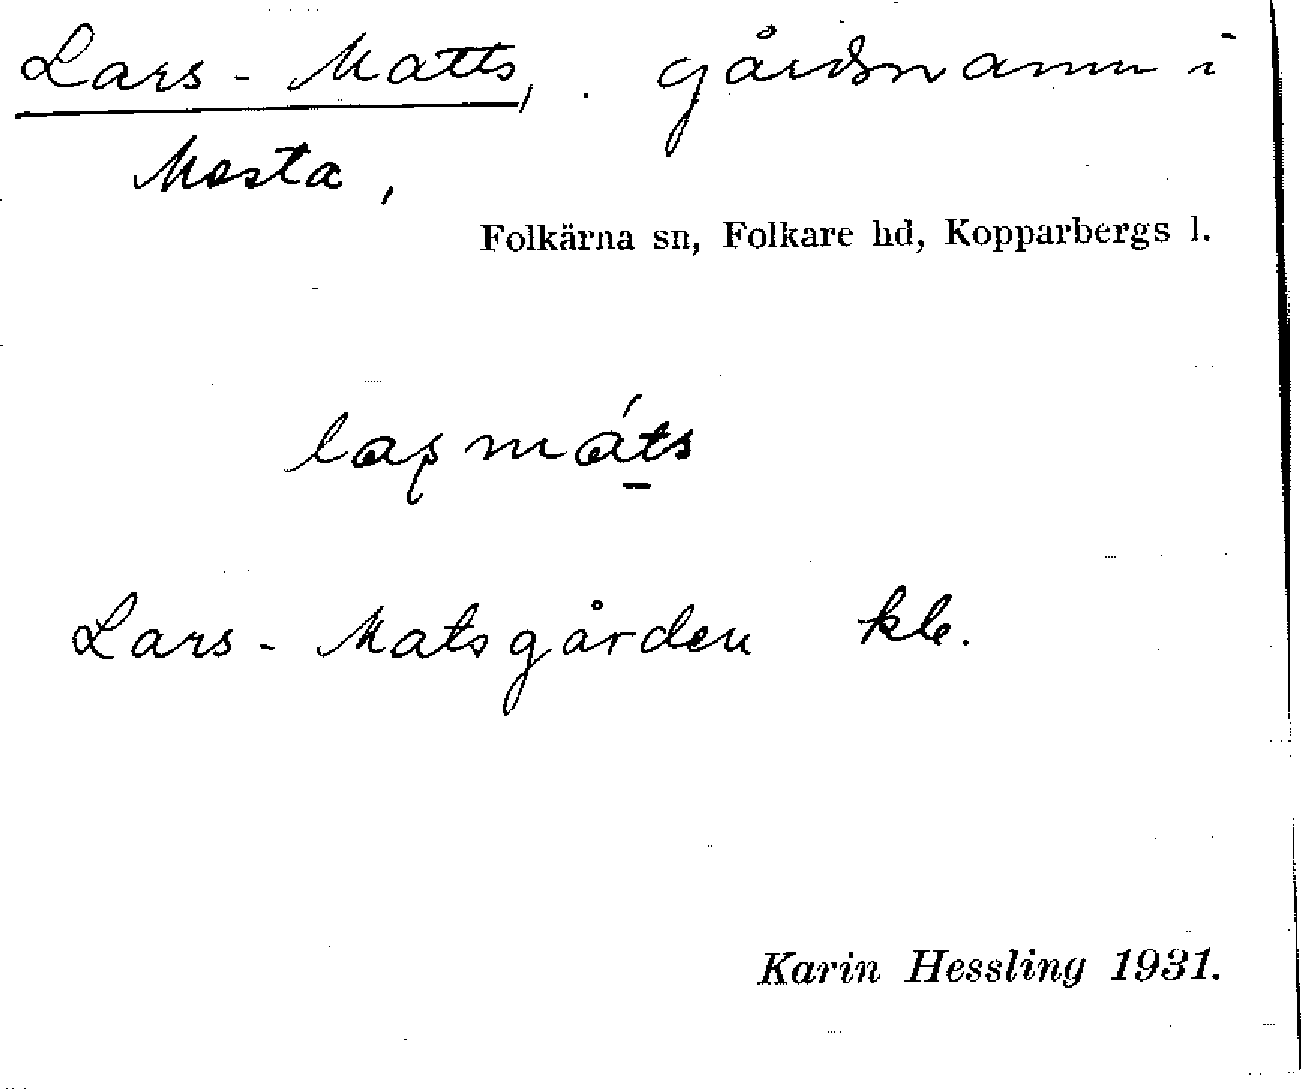 Lars-Matts, gårdsnamn i
Mesta,
Folkärna sn, Folkare hd, Kopparbergs l.
Lars-Matsgården kb.
Karin Hessling 1931.